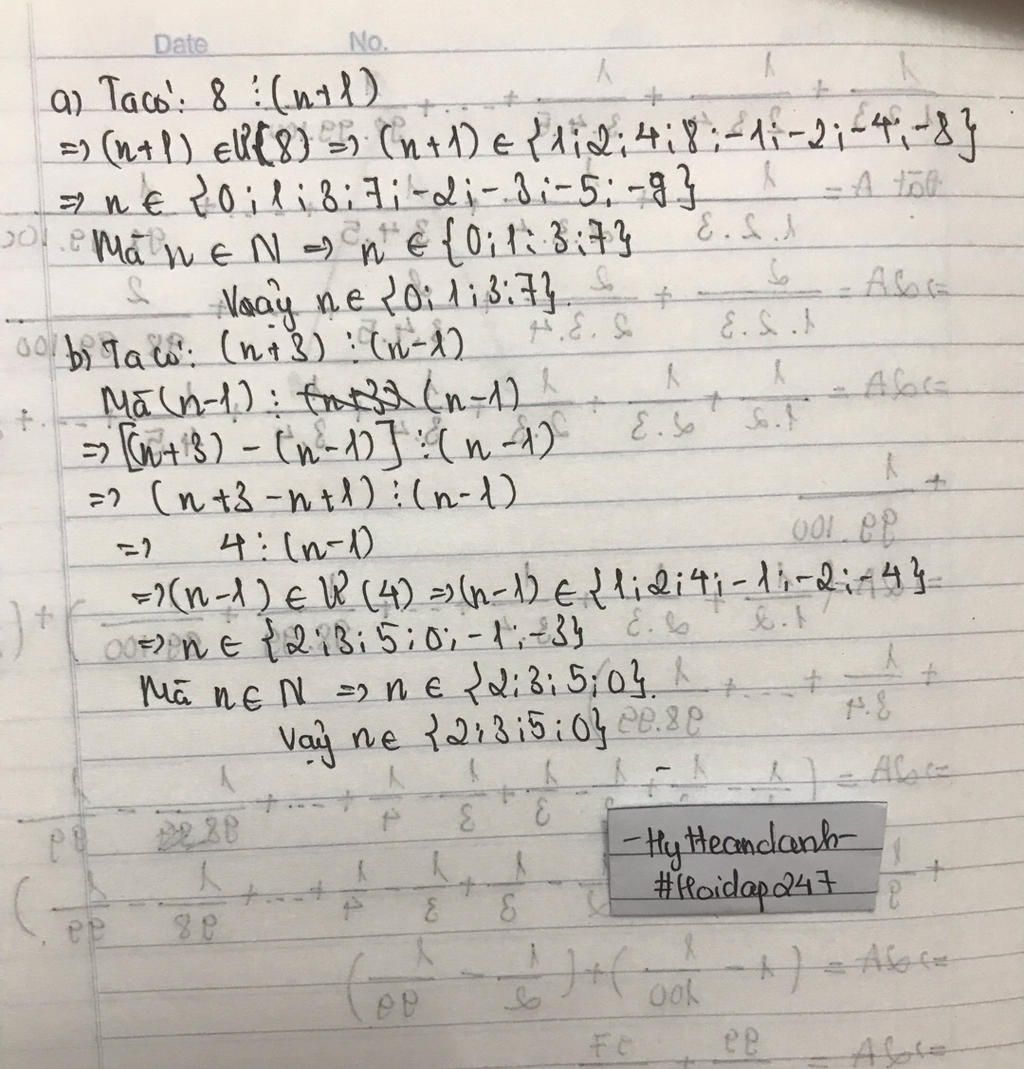 Date No.
a) Ta có: 8 ⋮ (n+1)
=> (n+1) ∈ Ư(8) => (n+1) ∈ {1;2;4;8;-1;-2;-4;-8}
=> n ∈ {0;1;3;7;-2;-3;-5;-9}
Mà n ∈ N => n ∈ {0;1;3;7}
Vậy n ∈ {0;1;3;7}.
b) Ta có: (n+3) ⋮ (n-1)
Mà (n-1) ⋮ (n-1)
=> [(n+3) - (n-1)] ⋮ (n-1)
=> (n+3-n+1) ⋮ (n-1)
=> 4 ⋮ (n-1)
=> (n-1) ∈ Ư(4) => (n-1) ∈ {1;2;4;-1;-2;-4}
=> n ∈ {2;3;5;0;-1;-3}
Mà n ∈ N => n ∈ {2;3;5;0}.
Vậy n ∈ {2;3;5;0}
-HyHeandanh-
#Hoidap247